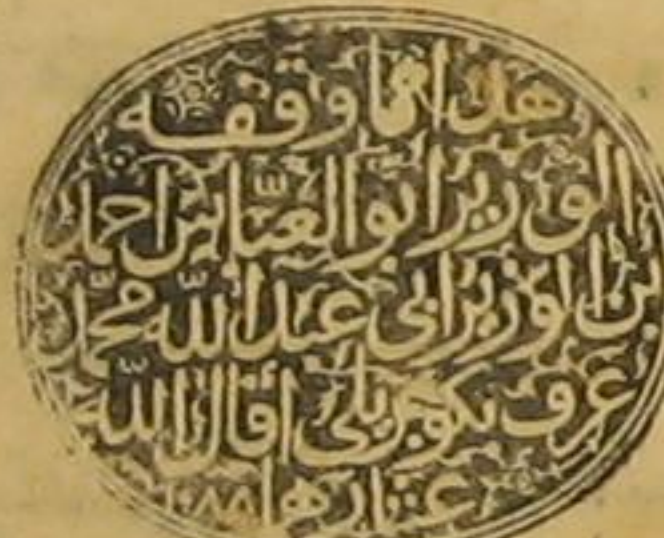 هذا مما وقفه
الوزير ابو العبّاس احمد
بن الوزير ابى عبد اللّه محمّد
عرف بكوبريلى أقال اللّه
عثارهما ١٠٨٨